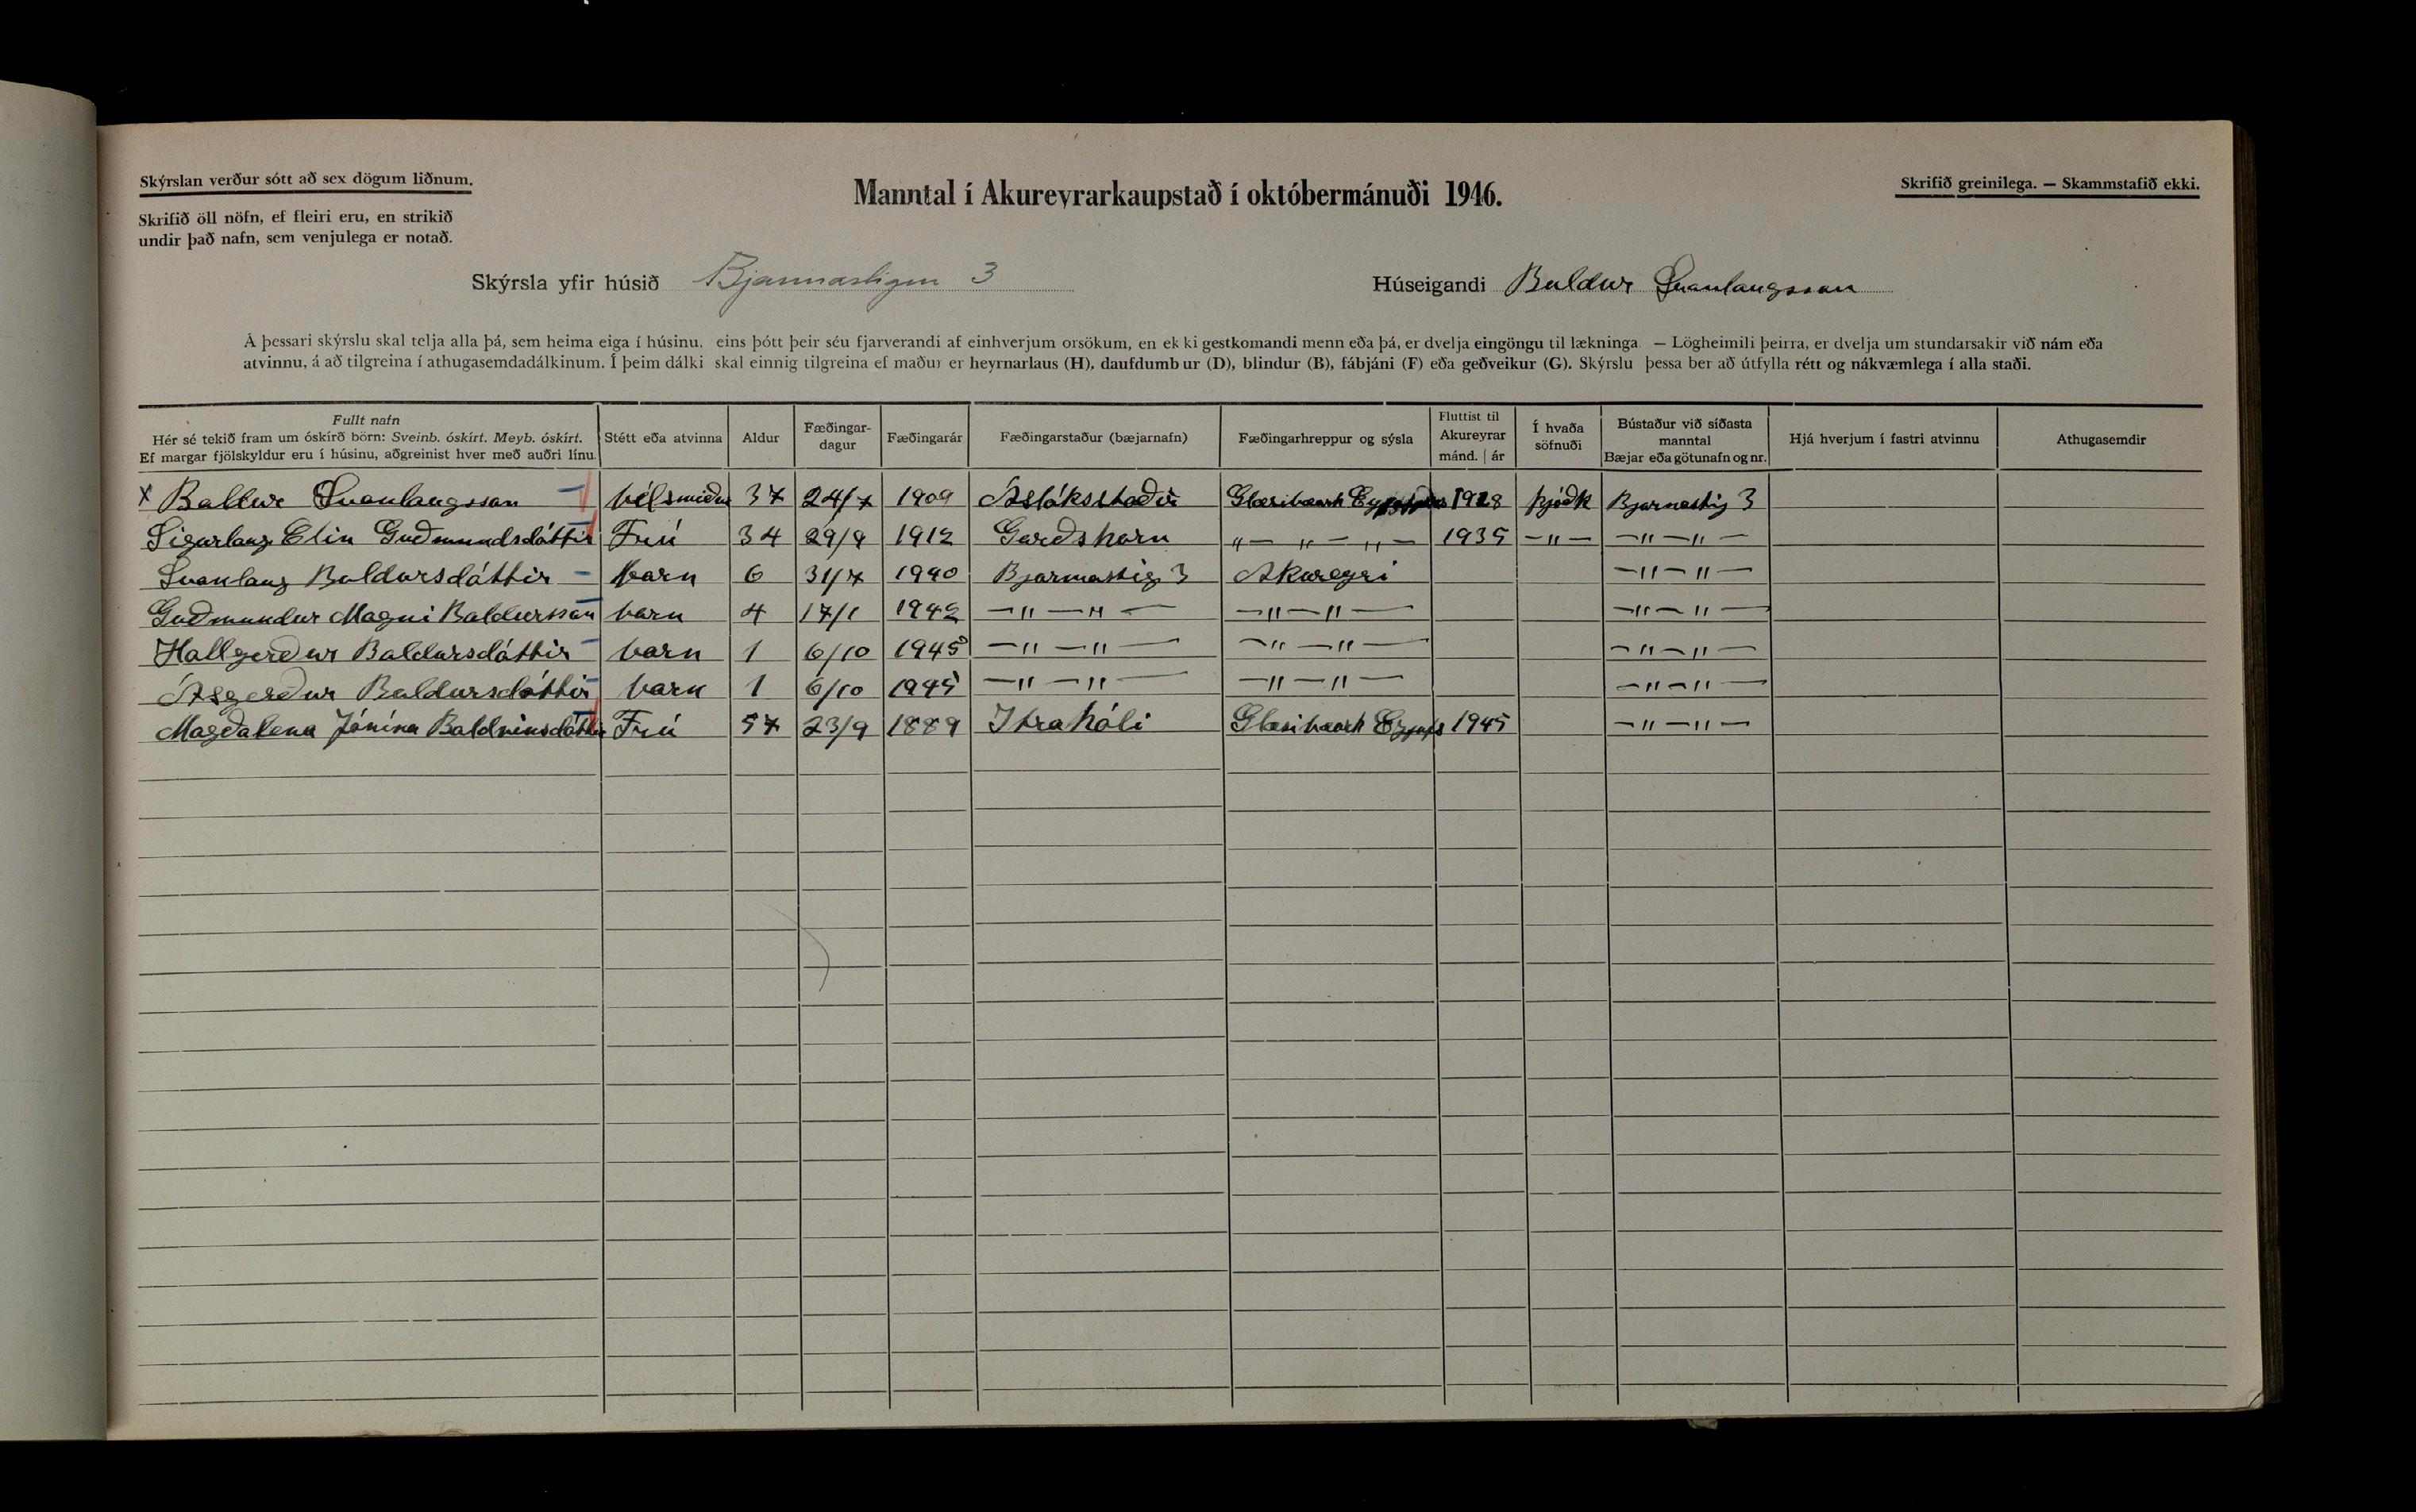 Skýrslan verður sótt að sex dögum liðnum.
Manntal í Akureyrarkaupstað í októbermánuði 1946.
Skrifið greinilega. — Skammstafið ekki.
Skrifið öll nöfn, ef fleiri eru, en strikið
undir það nafn, sem venjulega er notað.
Skýrsla yfir húsið Bjarmastígur 3 Húseigandi Baldur Svanlaugsson
Á þessari skýrslu skal telja alla þá, sem heima eiga í húsinu, eins þótt þeir séu fjarverandi af einhverjum orsökum, en ekki gestkomandi menn eða þá, er dvelja eingöngu til lækninga — Lögheimili þeirra, er dvelja um stundarsakir við nám eða
atvinnu, á að tilgreina í athugasemdadálkinum. Í þeim dálki skal einnig tilgreina ef maður er heyrnarlaus (H), daufdumbur (D), blindur (B), fábjáni (F) eða geðveikur (G). Skýrslu þessa ber að útfylla rétt og nákvæmlega í alla staði.
Fullt nafn
Hér sé tekið fram um óskírð börn: Sveinb. óskírt. Meyb. óskírt.
Ef margar fjölskyldur eru í húsinu, aðgreinist hver með auðri línu.
Stétt eða atvinna
Aldur
Fæðingar-
dagur
Fæðingarár
Fæðingarstaður (bæjarnafn)
Fæðingarhreppur og sýsla
Fluttist til
Akureyrar
mánd. | ár
Í hvaða
söfnuði
Bústaður við síðasta
manntal
Bæjar eða götunafn og nr.
Hjá hverjum í fastri atvinnu
Athugasemdir
x Baldur Svanlaugsson — vélsmiður 37 24/7 1909 Ásláksstaðir Glæsibæarh 1928 þjóðk Bjarmastíg 3
Sigurlaug Elin Guðmundsdóttir Frú 34 29/8 1912 Garðshorn „ — „ — „ — 1935 — „ — — „ — „ —
Svanlaug Baldursdóttir — barn 6 31/7 1940 Bjarmastíg 3 Akureyri — „ — „ —
Guðmundur Magni Baldursson barn 4 17/1 1942 — „ — „ — — „ — „ — — „ — „ —
Hallgerður Baldursdóttir — barn 1 6/10 1945 — „ — „ — — „ — „ — — „ — „ —
Ásgerður Baldursdóttir barn 1 6/10 1945 — „ — „ — — „ — „ — — „ — „ —
Magðalena Jónína Baldvinsdóttir Frú 57 23/9 1889 Ytrahóli Glæsibæarh Eyjafs 1945 — „ — „ —